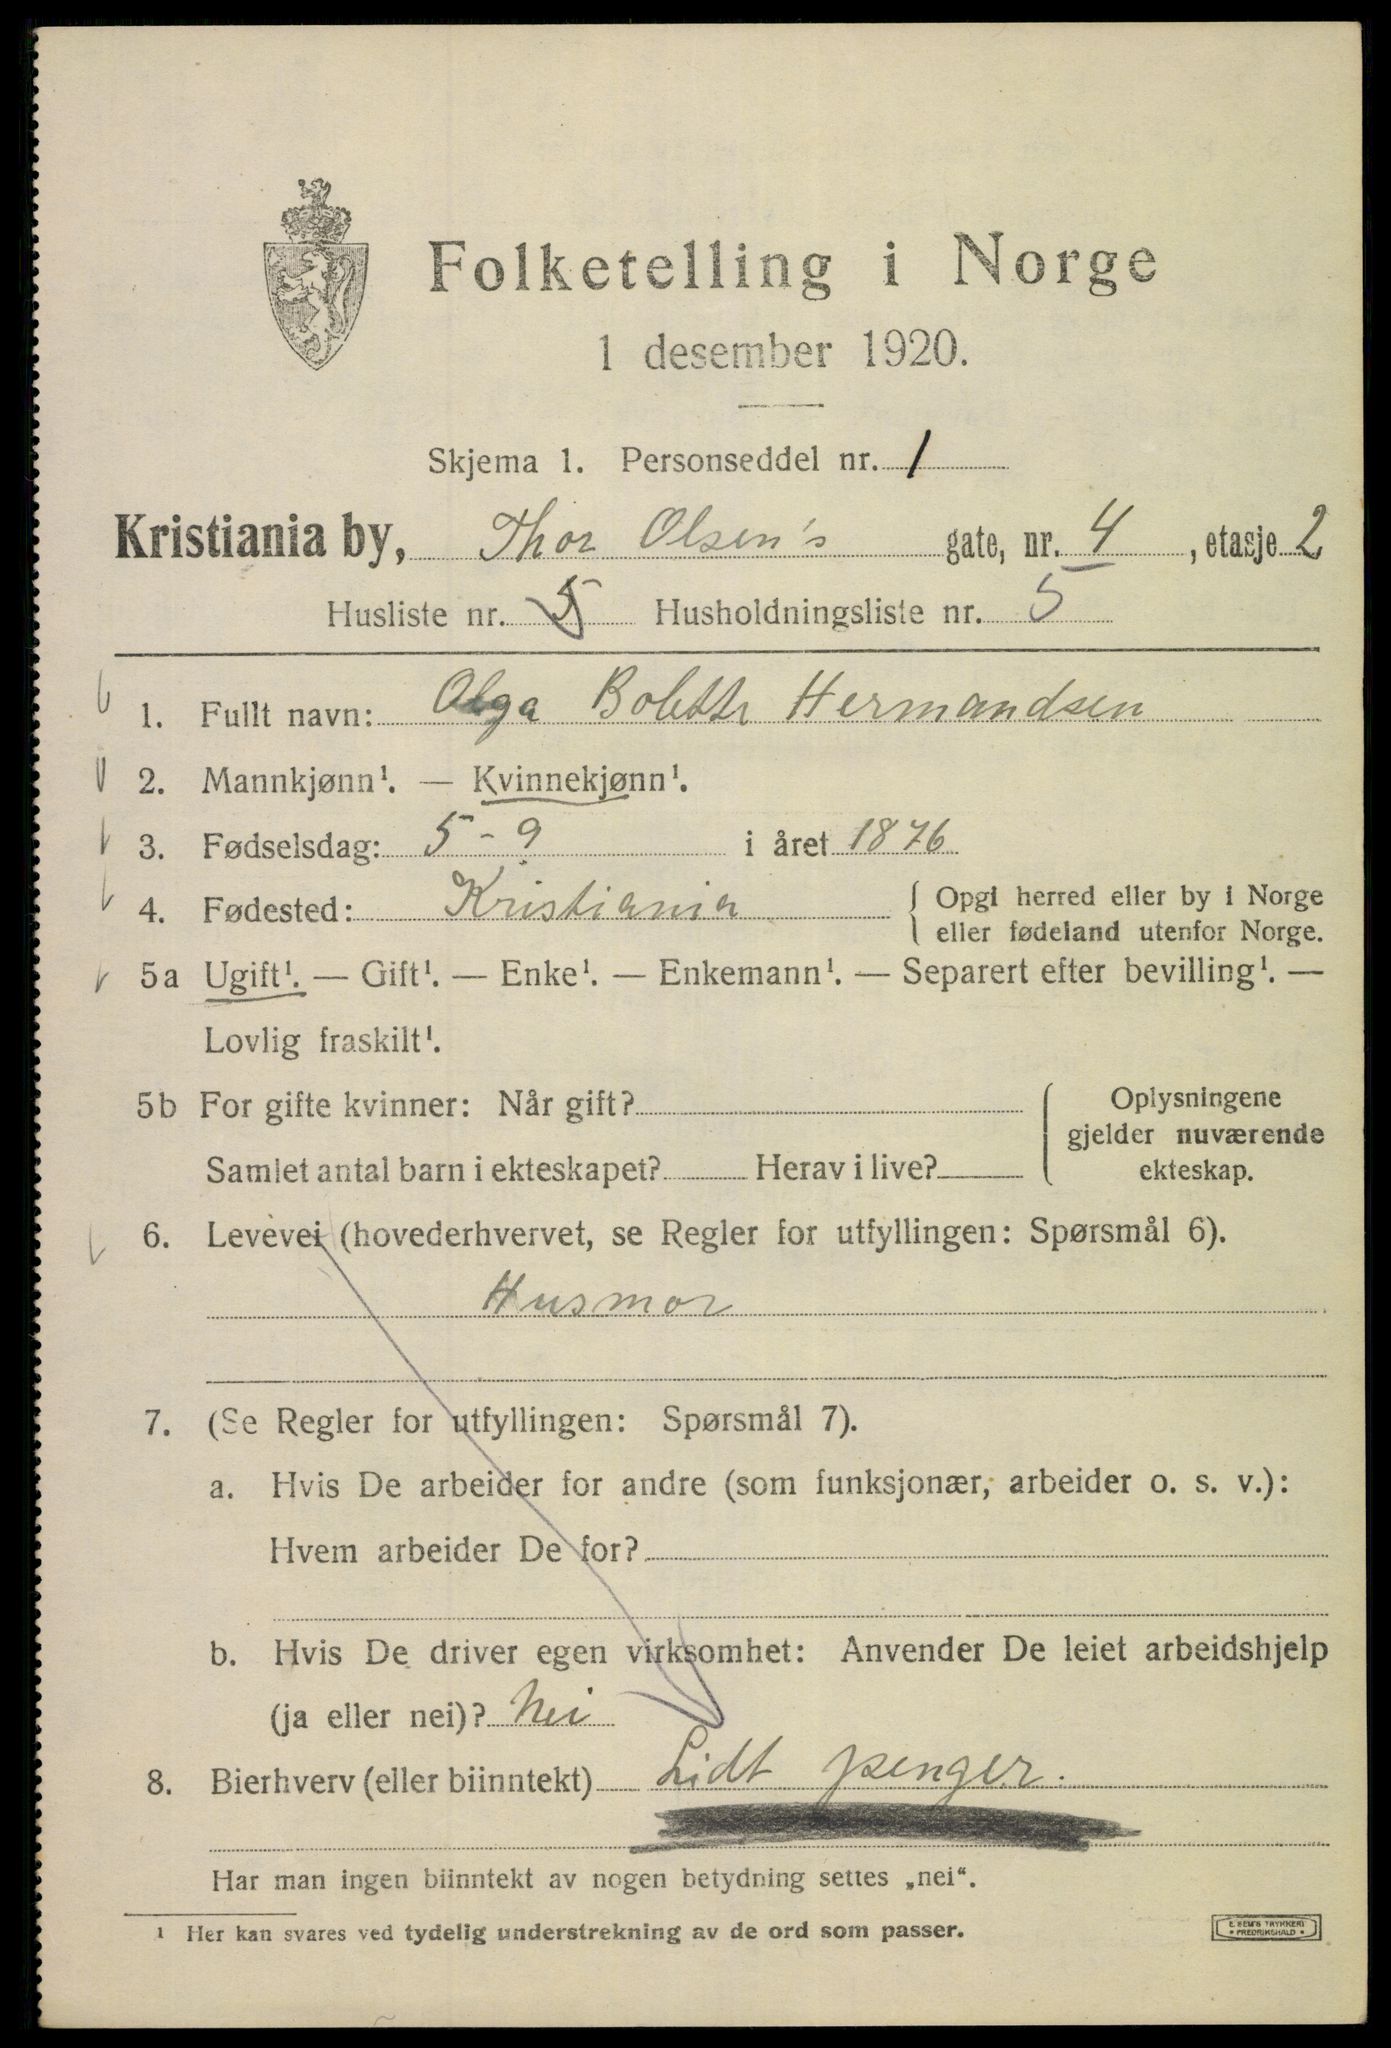 Folketelling i Norge
1 desember 1920.
Skjema 1. Personseddel nr. 1
Kristiania by, Thor Olsen's gate, nr. 4, etasje 2
Husliste nr. 5 Husholdningsliste nr. 5
1. Fullt navn: Olga Bolette Hermandsen
2. Mannkjønn¹. — Kvinnekjønn¹.
3. Fødselsdag: 5 - 9 i året 1876
4. Fødested: Kristiania { Opgi herred eller by i Norge
eller fødeland utenfor Norge.
5a Ugift¹. — Gift¹. — Enke¹. — Enkemann¹. — Separert efter bevilling¹. —
Lovlig fraskilt¹.
5b For gifte kvinner: Når gift? { Oplysningene
gjelder nuværende
Samlet antal barn i ekteskapet? Herav i live? ekteskap.
6. Levevei (hovederhvervet, se Regler for utfyllingen: Spørsmål 6).
Husmor
7. (Se Regler for utfyllingen: Spørsmål 7).
a. Hvis De arbeider for andre (som funksjonær, arbeider o. s. v.):
Hvem arbeider De for?
b. Hvis De driver egen virksomhet: Anvender De leiet arbeidshjelp
(ja eller nei)? Nei
8. Bierhverv (eller biinntekt) Lidt penger.
Har man ingen biinntekt av nogen betydning settes „nei“.
¹ Her kan svares ved tydelig understrekning av de ord som passer.
E. SEM'S TRYKKERI
• FREDRIKSHALD •